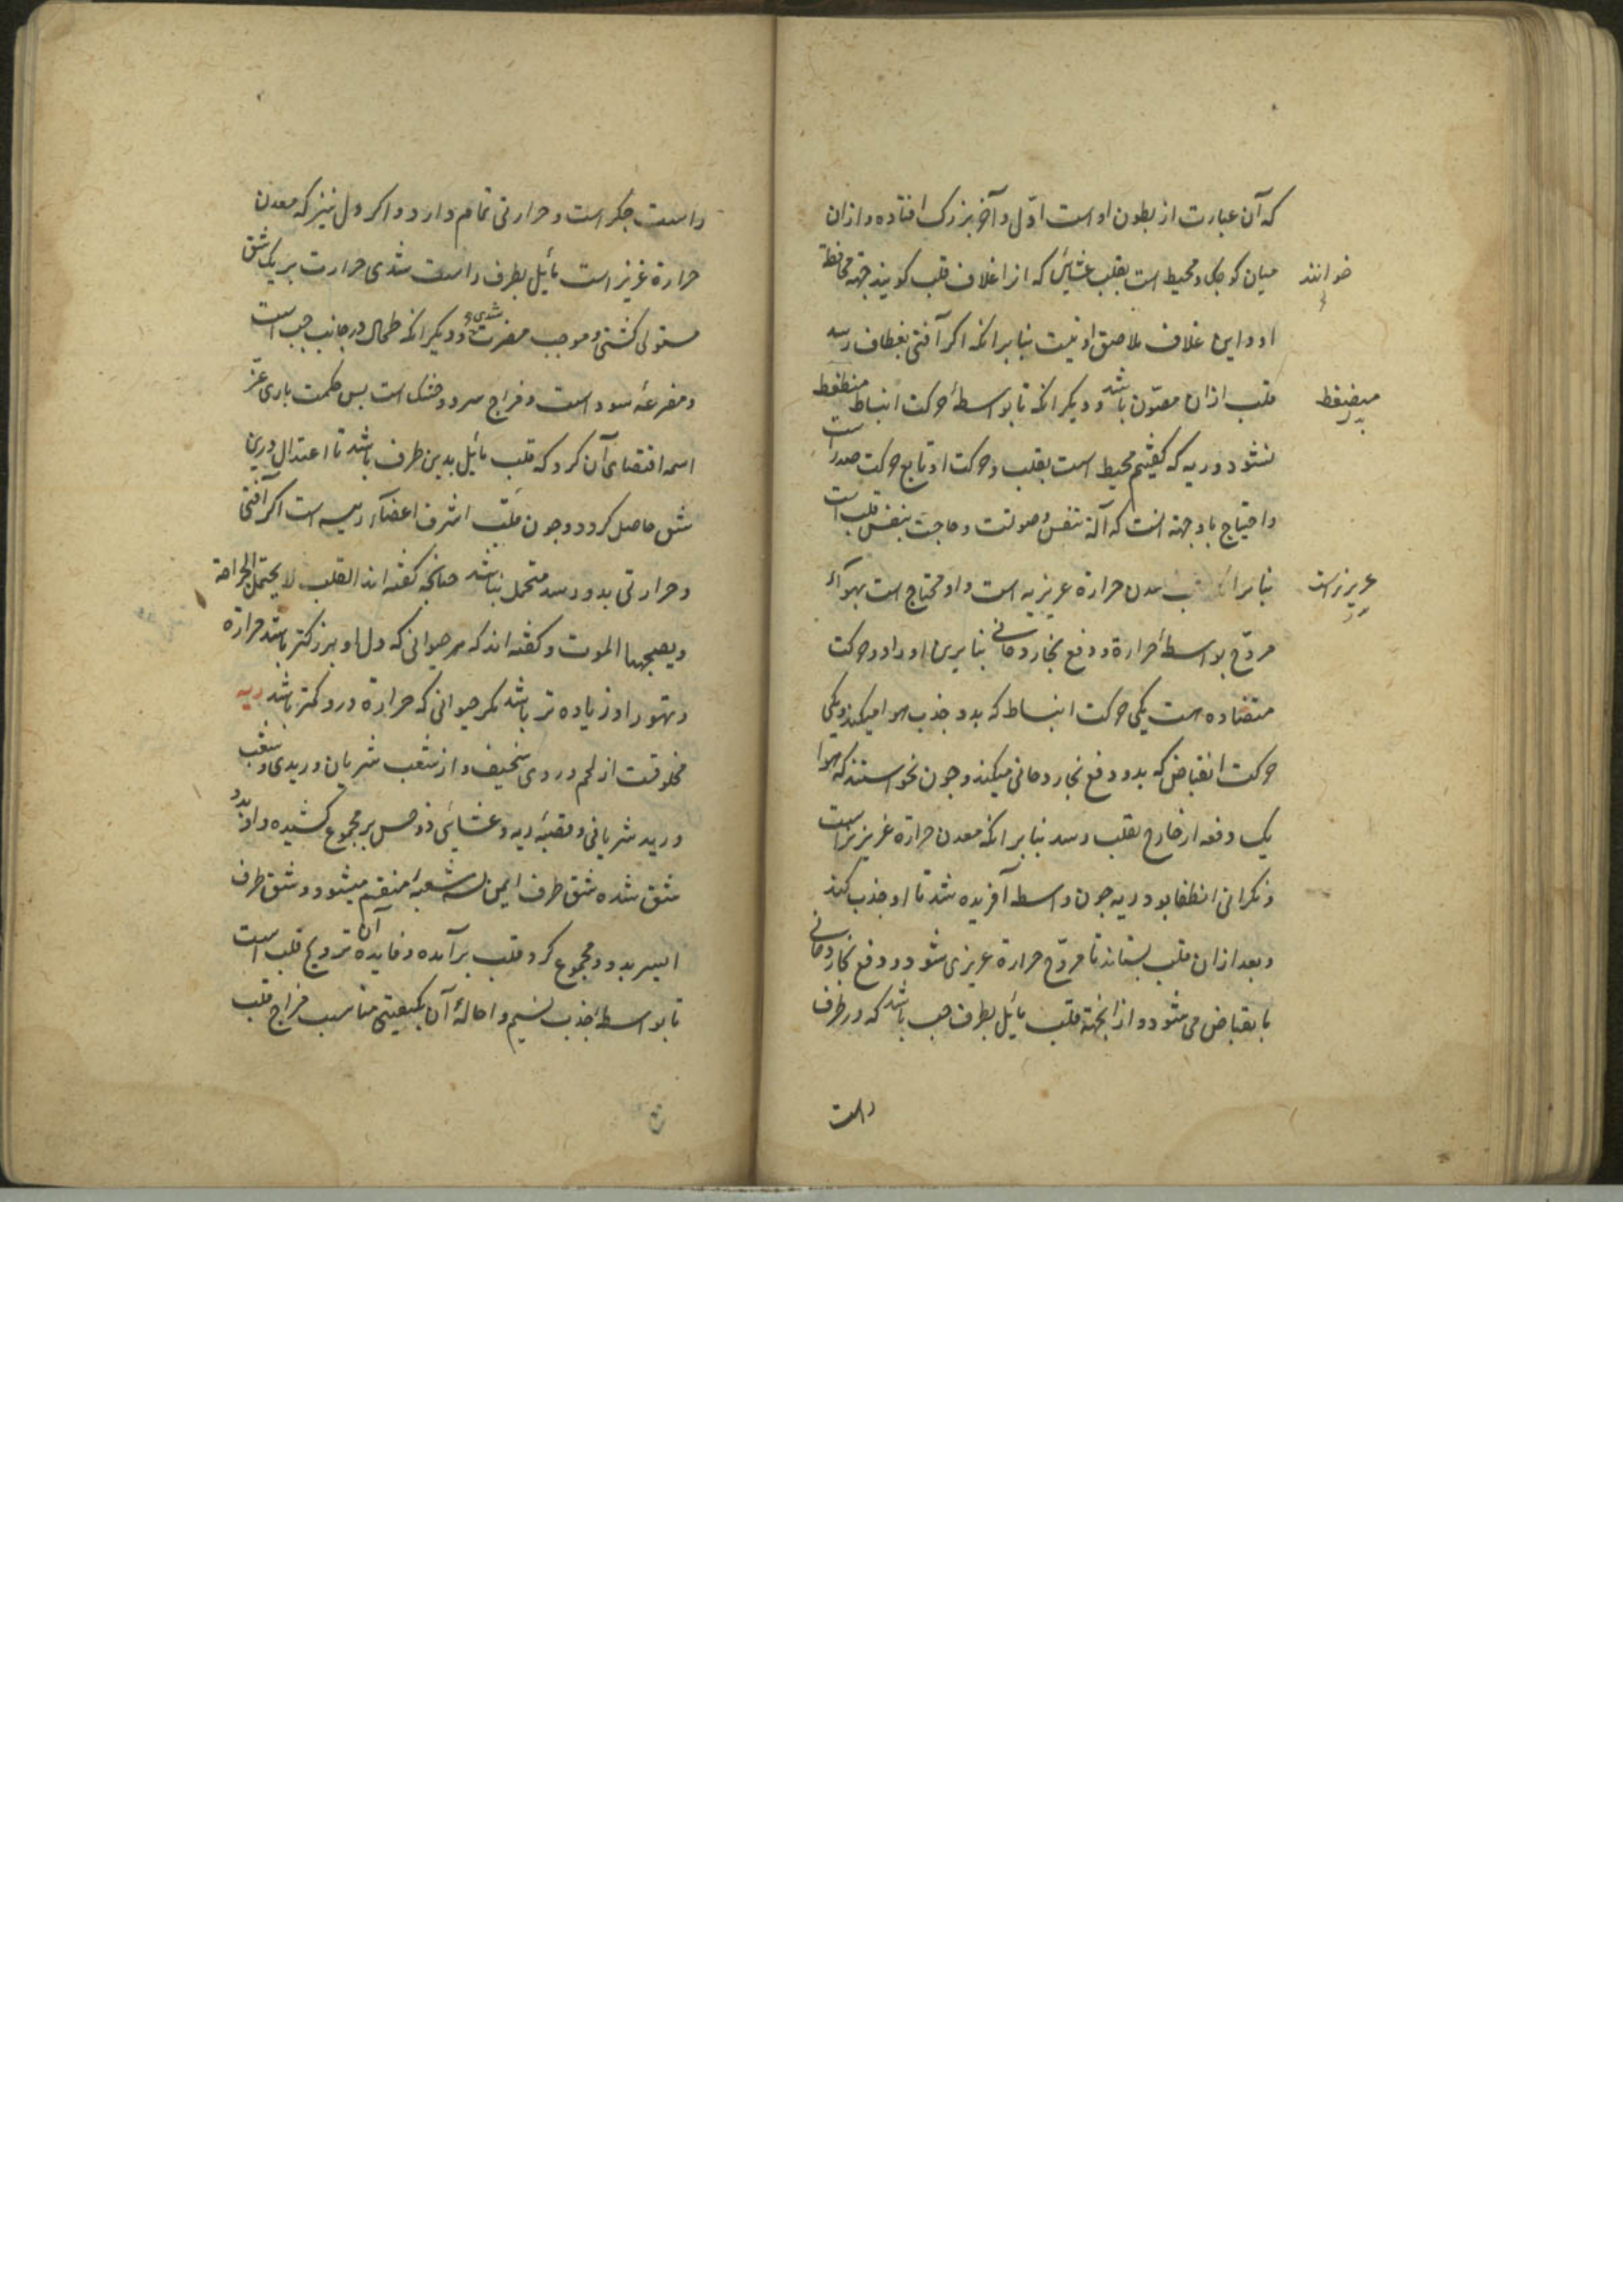 که آن عبارت از بطون او است اوّل و آخر بزرک افتاده و ازان
میان کوجک و محیط است بقلب غشایٔی که انرا غلاف قلب کویند جهة محافظة
خوانند
او و این غلاف ملاصق او نیست بنابرانکه اکر آفتی بغلاف رسد
قلب ازان مصوّن باشد و دیکر انکه تا بواسطهٔ حرکت انبساط منضغط
منضغط
نشود و ریه که کفتیم محیط است بقلب و حرکت او تابع حرکت صدر است
و احتیاج باو جهة انست که آلة تنفس و صوتست و حاجت بنفس قلب است
بنابرانکه قلب معدن حرارة غریزیه است و او محتاج است بهوآء
غریزیست
مروّح بواسطهٔ حرارة و دفع بخار دخانی بنابرین او را دو حرکت
متضاده است یکی حرکت انبساط که بدو جذب هوا میکند و یکی
حرکت انقباض که بدو دفع بخار دخانی میکند و جون نخواستند که هوا
یک دفعه از خارج بقلب رسد بنابرانکه معدن حرارة غریزیست
و نکرانی انطفا بود ریه جون واسطه آفریده شد تا او جذب کند
و بعد ازان قلب بستاند تا مروّح حرارة غریزی شود و دفع بخار دخانی
بانقباض می شود و ازانجهة قلب مایٔل بطرف جب باشد که در طرف
راست
راست جکر است و حرارتی تمام دارد و اکر دل نیز که معدن
حرارة غریز است مایٔل بطرف راست شدی حرارت بر یک شق
مستولی کشتی و موجب مضرت شدی و دیکر انکه طحال در جانب جب است
و مفرغهٔ سود است و مزاج سرد و خشک است بس حکمت باری عزّ
اسمه اقتضای آن کرد که قلب مایٔل بدین طرف باشد تا اعتدال درین
شق حاصل کردد و جون قلب اشرف اعضآء رییسه است اکر آفتی
و حرارتی بدو رسد متحمل نباشد جنانجه کفته اند القلب لا یحتمل الجراحة
و یصحبها الموت و کفته اند که هر حیوانی که دل او بزرکتر باشد حرارة
و تهور او زیاده تر باشد مکر حیوانی که حرارة درو کمتر باشد ریه
مخلوقست از لحم وردی سخیف و از شعب شریان وریدی و شعب
ورید شریانی و قصبهٔ ریه و غشایٔی ذو حس بر مجموع کشیده و او بدو
شق شده شق طرف ایمن بسه شعبه منقسم میشود و شق طرف
ایسر بدو و مجموع کرد قلب برآمده و فایدهٔ آن ترویح قلب است
تا بواسطهٔ جذب نسیم و احالهٔ آن بکیفیتی مناسب مزاج قلب